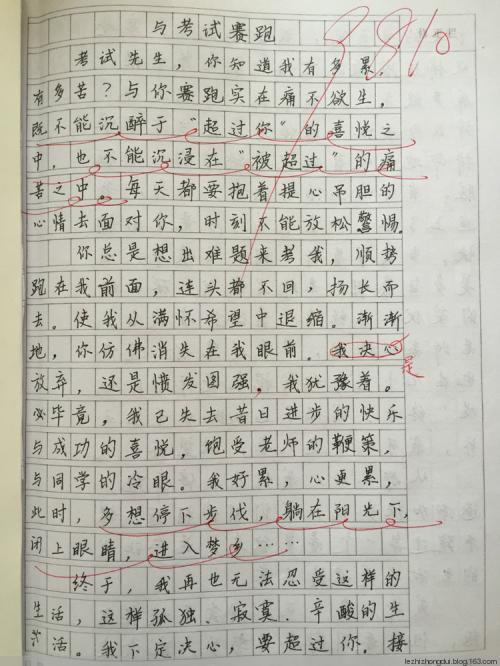 与考试赛跑
考试先生，你知道我有多累，
有多苦？与你赛跑实在痛不欲生，
既不能沉醉于“超过你”的喜悦之
中，也不能沉浸在“被超过”的痛
苦之中。每天都要抱着提心吊胆的
心情去面对你，时刻不能放松警惕。
你总是想出难题来考我，顺势
跑在我前面，连头都不回，扬长而
去。使我从满怀希望中退缩。渐渐
地，你仿佛消失在我眼前。我决心
是
放弃，还是愤发图强，我犹豫着。
毕竟，我已失去昔日进步的快乐
与成功的喜悦，饱受老师的鞭策，
与同学的冷眼。我好累，心更累，
此时，多想停下步伐，躺在阳光下，
闭上眼睛，进入梦乡……
终于，我再也无法忍受这样的
生活，这样孤独、寂寞、辛酸的生
活。我下定决心，要超过你。接
lezhizhongdui.blog.163.com